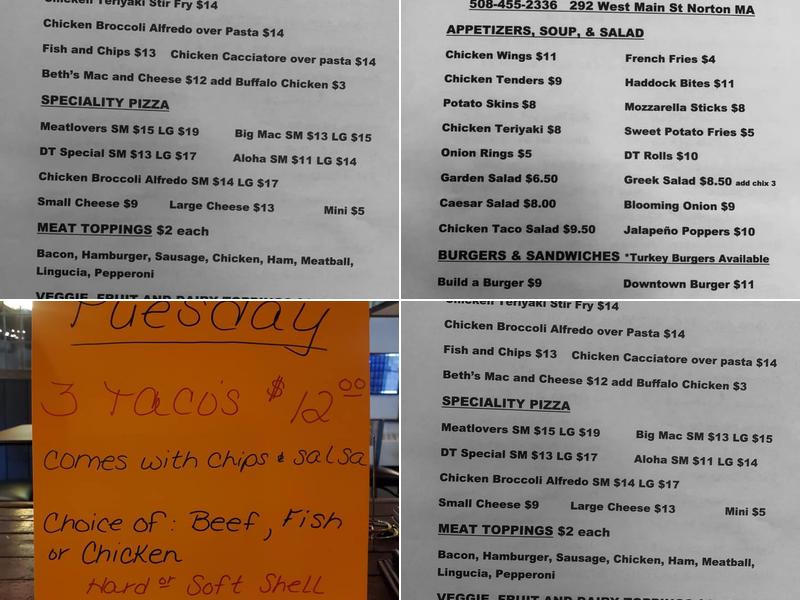 Chicken Teriyaki Stir Fry $14
Chicken Broccoli Alfredo over Pasta $14
Fish and Chips $13 Chicken Cacciatore over pasta $14
Beth's Mac and Cheese $12 add Buffalo Chicken $3
SPECIALITY PIZZA
Meatlovers SM $15 LG $19 Big Mac SM $13 LG $15
DT Special SM $13 LG $17 Aloha SM $11 LG $14
Chicken Broccoli Alfredo SM $14 LG $17
Small Cheese $9 Large Cheese $13 Mini $5
MEAT TOPPINGS $2 each
Bacon, Hamburger, Sausage, Chicken, Ham, Meatball,
Lingucia, Pepperoni
VEGGIE, FRUIT AND DAIRY TOPPINGS
508-455-2336 292 West Main St Norton MA
APPETIZERS, SOUP, & SALAD
Chicken Wings $11 French Fries $4
Chicken Tenders $9 Haddock Bites $11
Potato Skins $8 Mozzarella Sticks $8
Chicken Teriyaki $8 Sweet Potato Fries $5
Onion Rings $5 DT Rolls $10
Garden Salad $6.50 Greek Salad $8.50 add chix 3
Caesar Salad $8.00 Blooming Onion $9
Chicken Taco Salad $9.50 Jalapeño Poppers $10
BURGERS & SANDWICHES *Turkey Burgers Available
Build a Burger $9 Downtown Burger $11
Tuesday
3 Tacos $12.00
Comes with Chips & salsa
Choice of: Beef, Fish
or Chicken
Hard or Soft Shell
Chicken Teriyaki Stir Fry $14
Chicken Broccoli Alfredo over Pasta $14
Fish and Chips $13 Chicken Cacciatore over pasta $14
Beth's Mac and Cheese $12 add Buffalo Chicken $3
SPECIALITY PIZZA
Meatlovers SM $15 LG $19 Big Mac SM $13 LG $15
DT Special SM $13 LG $17 Aloha SM $11 LG $14
Chicken Broccoli Alfredo SM $14 LG $17
Small Cheese $9 Large Cheese $13 Mini $5
MEAT TOPPINGS $2 each
Bacon, Hamburger, Sausage, Chicken, Ham, Meatball,
Lingucia, Pepperoni
VEGGIE, FRUIT AND DAIRY TOPPINGS